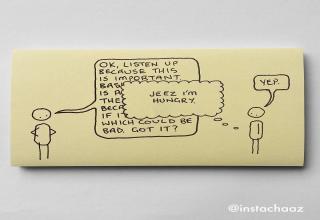 OK, LISTEN UP
BECAUSE THIS
IS IMPORTANT
IS A
IF IT
WHICH COULD BE
BAD. GOT IT?
JEEZ I'M
HUNGRY.
YEP.
@instachaaz